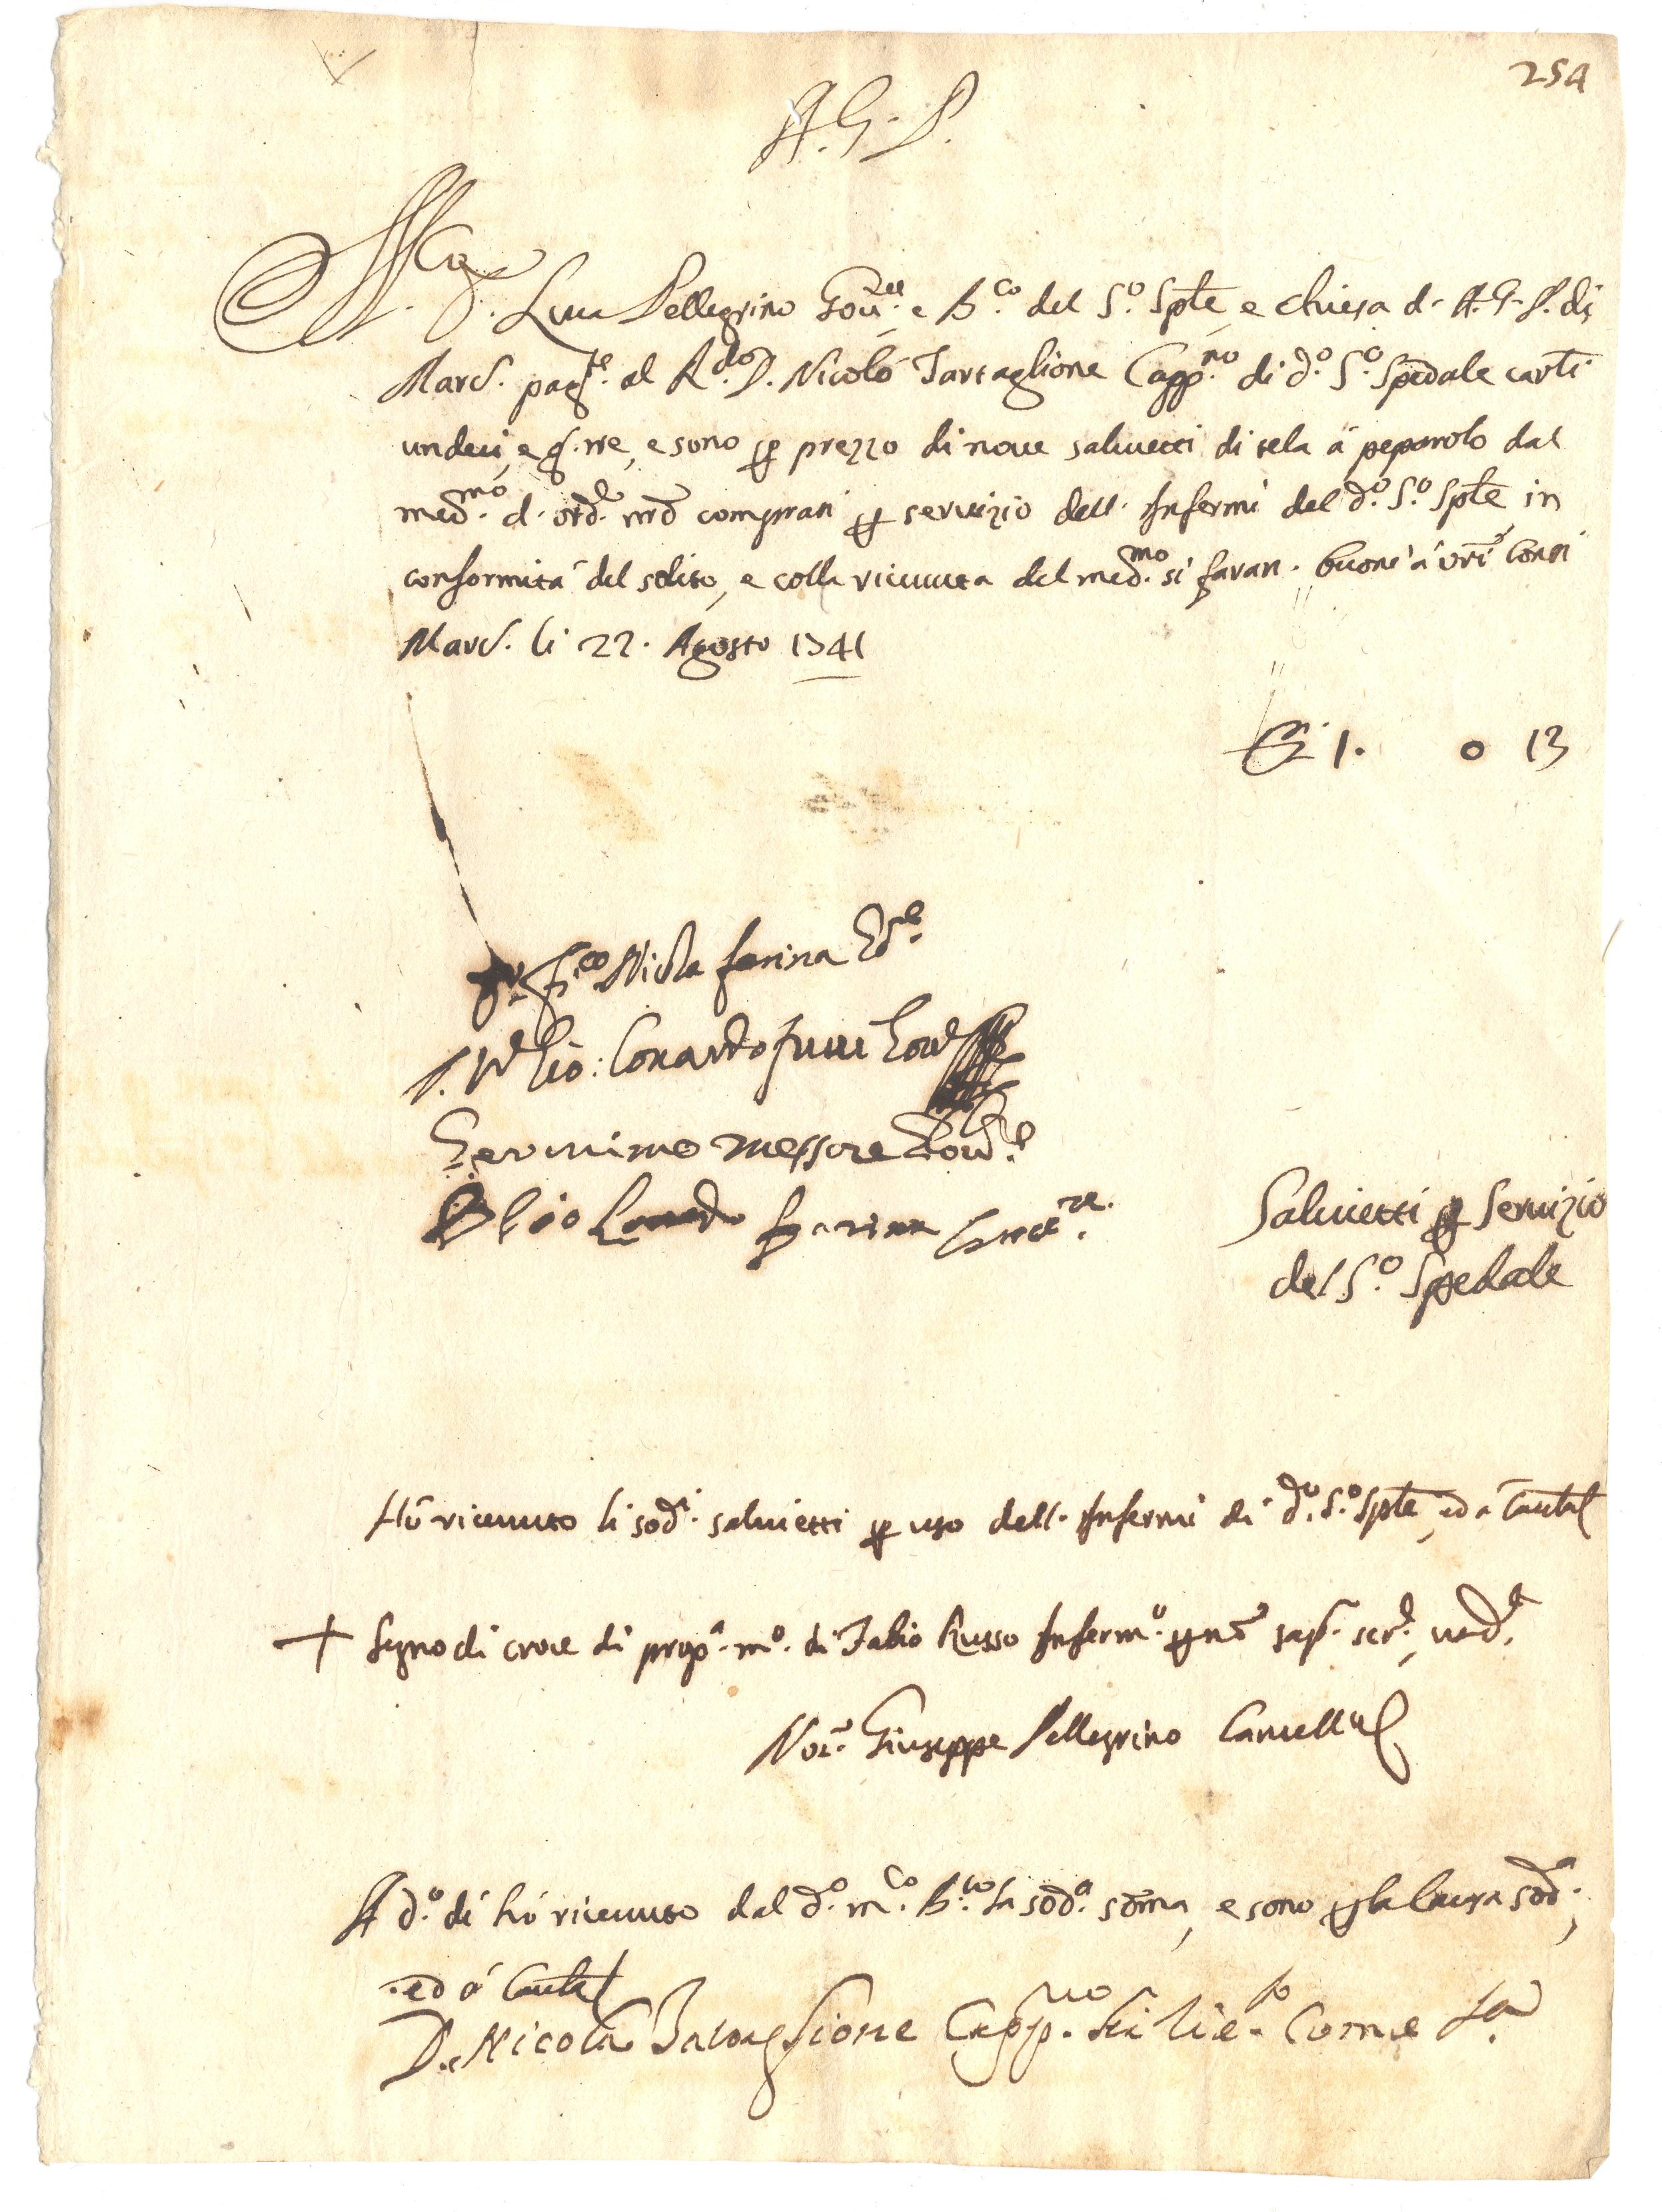 254
A. G. P.
M.co
Luca Pellegrino Gou.re e B.co del S.o Sp̄le, e chiesa d. A. G. P. di
Marc. pag.te al R.do D. Nicolò Tartaglione Capp.no di d.o S.o Spedale carl:
undeci, e g. tre, e sono per prezzo di noue saluietti di tela à peparolo dal
med.mo d. ord.e nr̄o comprati per seruizio dell. Infermi del d.o S.o Sp̄le in
conformità del solito, e colla riceuuta del med.mo si faran. buoni à vr̄i Conti
Marc. li 22. Agosto 1741
1. 0 13
Nicola farina
Geronimo Messore Gou.re
farina
Saluietti per Seruizio
del S.o Spedale
Hò riceuuto li sod.i saluietti per uso dell. Infermi di d.o S.o Sp̄le, ed à Cautel
+ Segno di croce di prop.a m.o di Fabio Russo Inferm.o per nō sap. scr.e,
Not.r Giuseppe Pellegrino Cancell.re
A d.o dì hò riceuuto dal d.o m.co B.co la sod.a som̄a, e sono per la causa sod.a,
ed à Cautel
D. Nicola Tartaglione Capp.no come sa